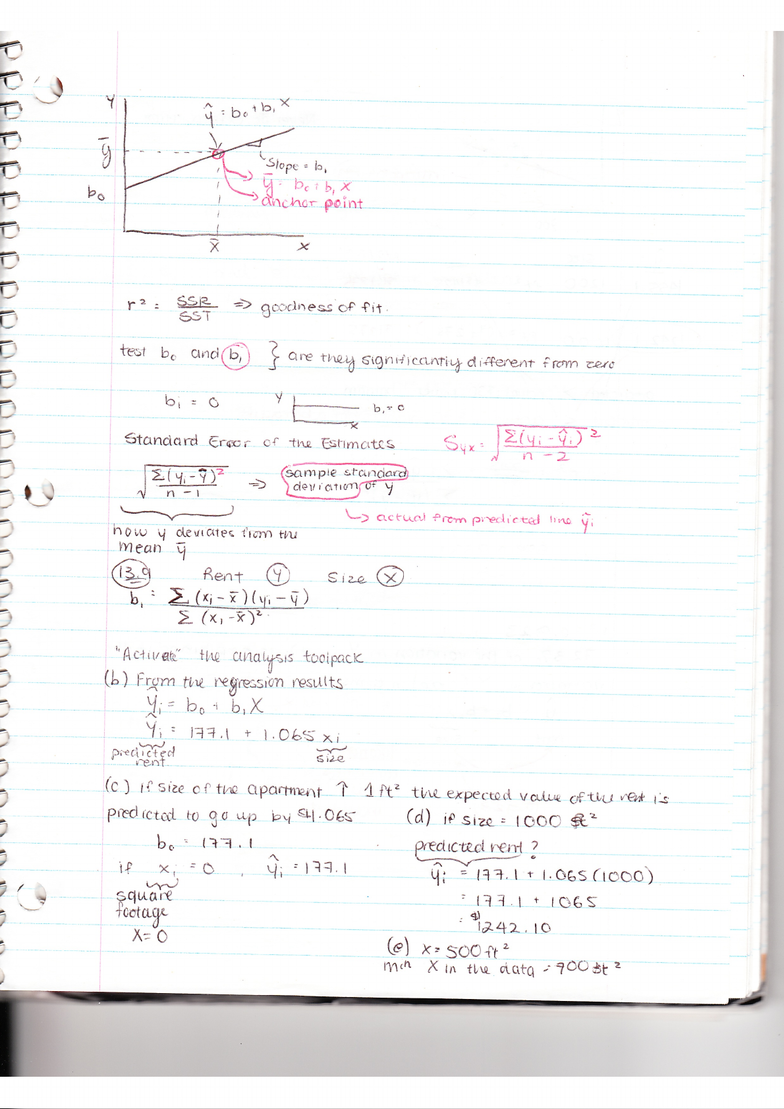 y
ŷ = b₀ + b₁ x
ȳ
slope = b₁
ȳ = b₀ = b₁ x
b₀
anchor point
x̄
x
r² = SSR / SST => goodness of fit.
test b₀ and b₁ } are they significantly different from zero
b₁ = 0
y
b₁ = 0
x
Standard Error of the Estimates
Syx = √(Σ(yᵢ - ŷᵢ)² / n - 2)
√(Σ(yᵢ - ȳ)² / n - 1) => sample standard
deviation of y
↳ actual from predicted line ŷᵢ
how y deviates from the
mean ȳ
13.9 Rent y size x
b₁ = Σ (xᵢ - x̄)(yᵢ - ȳ) / Σ (xᵢ - x̄)²
"Activate" the analysis toolpack
(b) From the regression results
ŷᵢ = b₀ + b₁X
ŷᵢ = 177.1 + 1.065 xᵢ
predicted
rent
size
(c) if size of the apartment ↑ 1 ft² the expected value of the rent is
predicted to go up by $1.065
b₀ = 177.1
if xᵢ = 0, ŷᵢ = 177.1
square
footage
X = 0
(d) if size = 1000 ft²
predicted rent?
ŷᵢ = 177.1 + 1.065(1000)
= 177.1 + 1065
= $1242.10
(e) x = 500 ft²
X in the data = 900 ft²